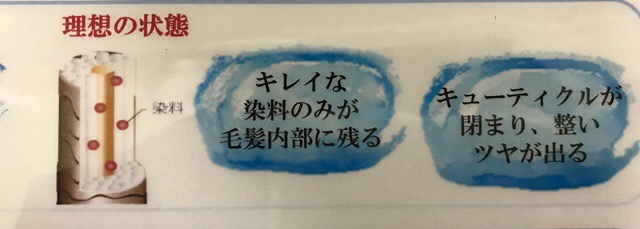 理想の状態
染料
キレイな
染料のみが
毛髪内部に残る
キューティクルが
閉まり、整い
ツヤが出る